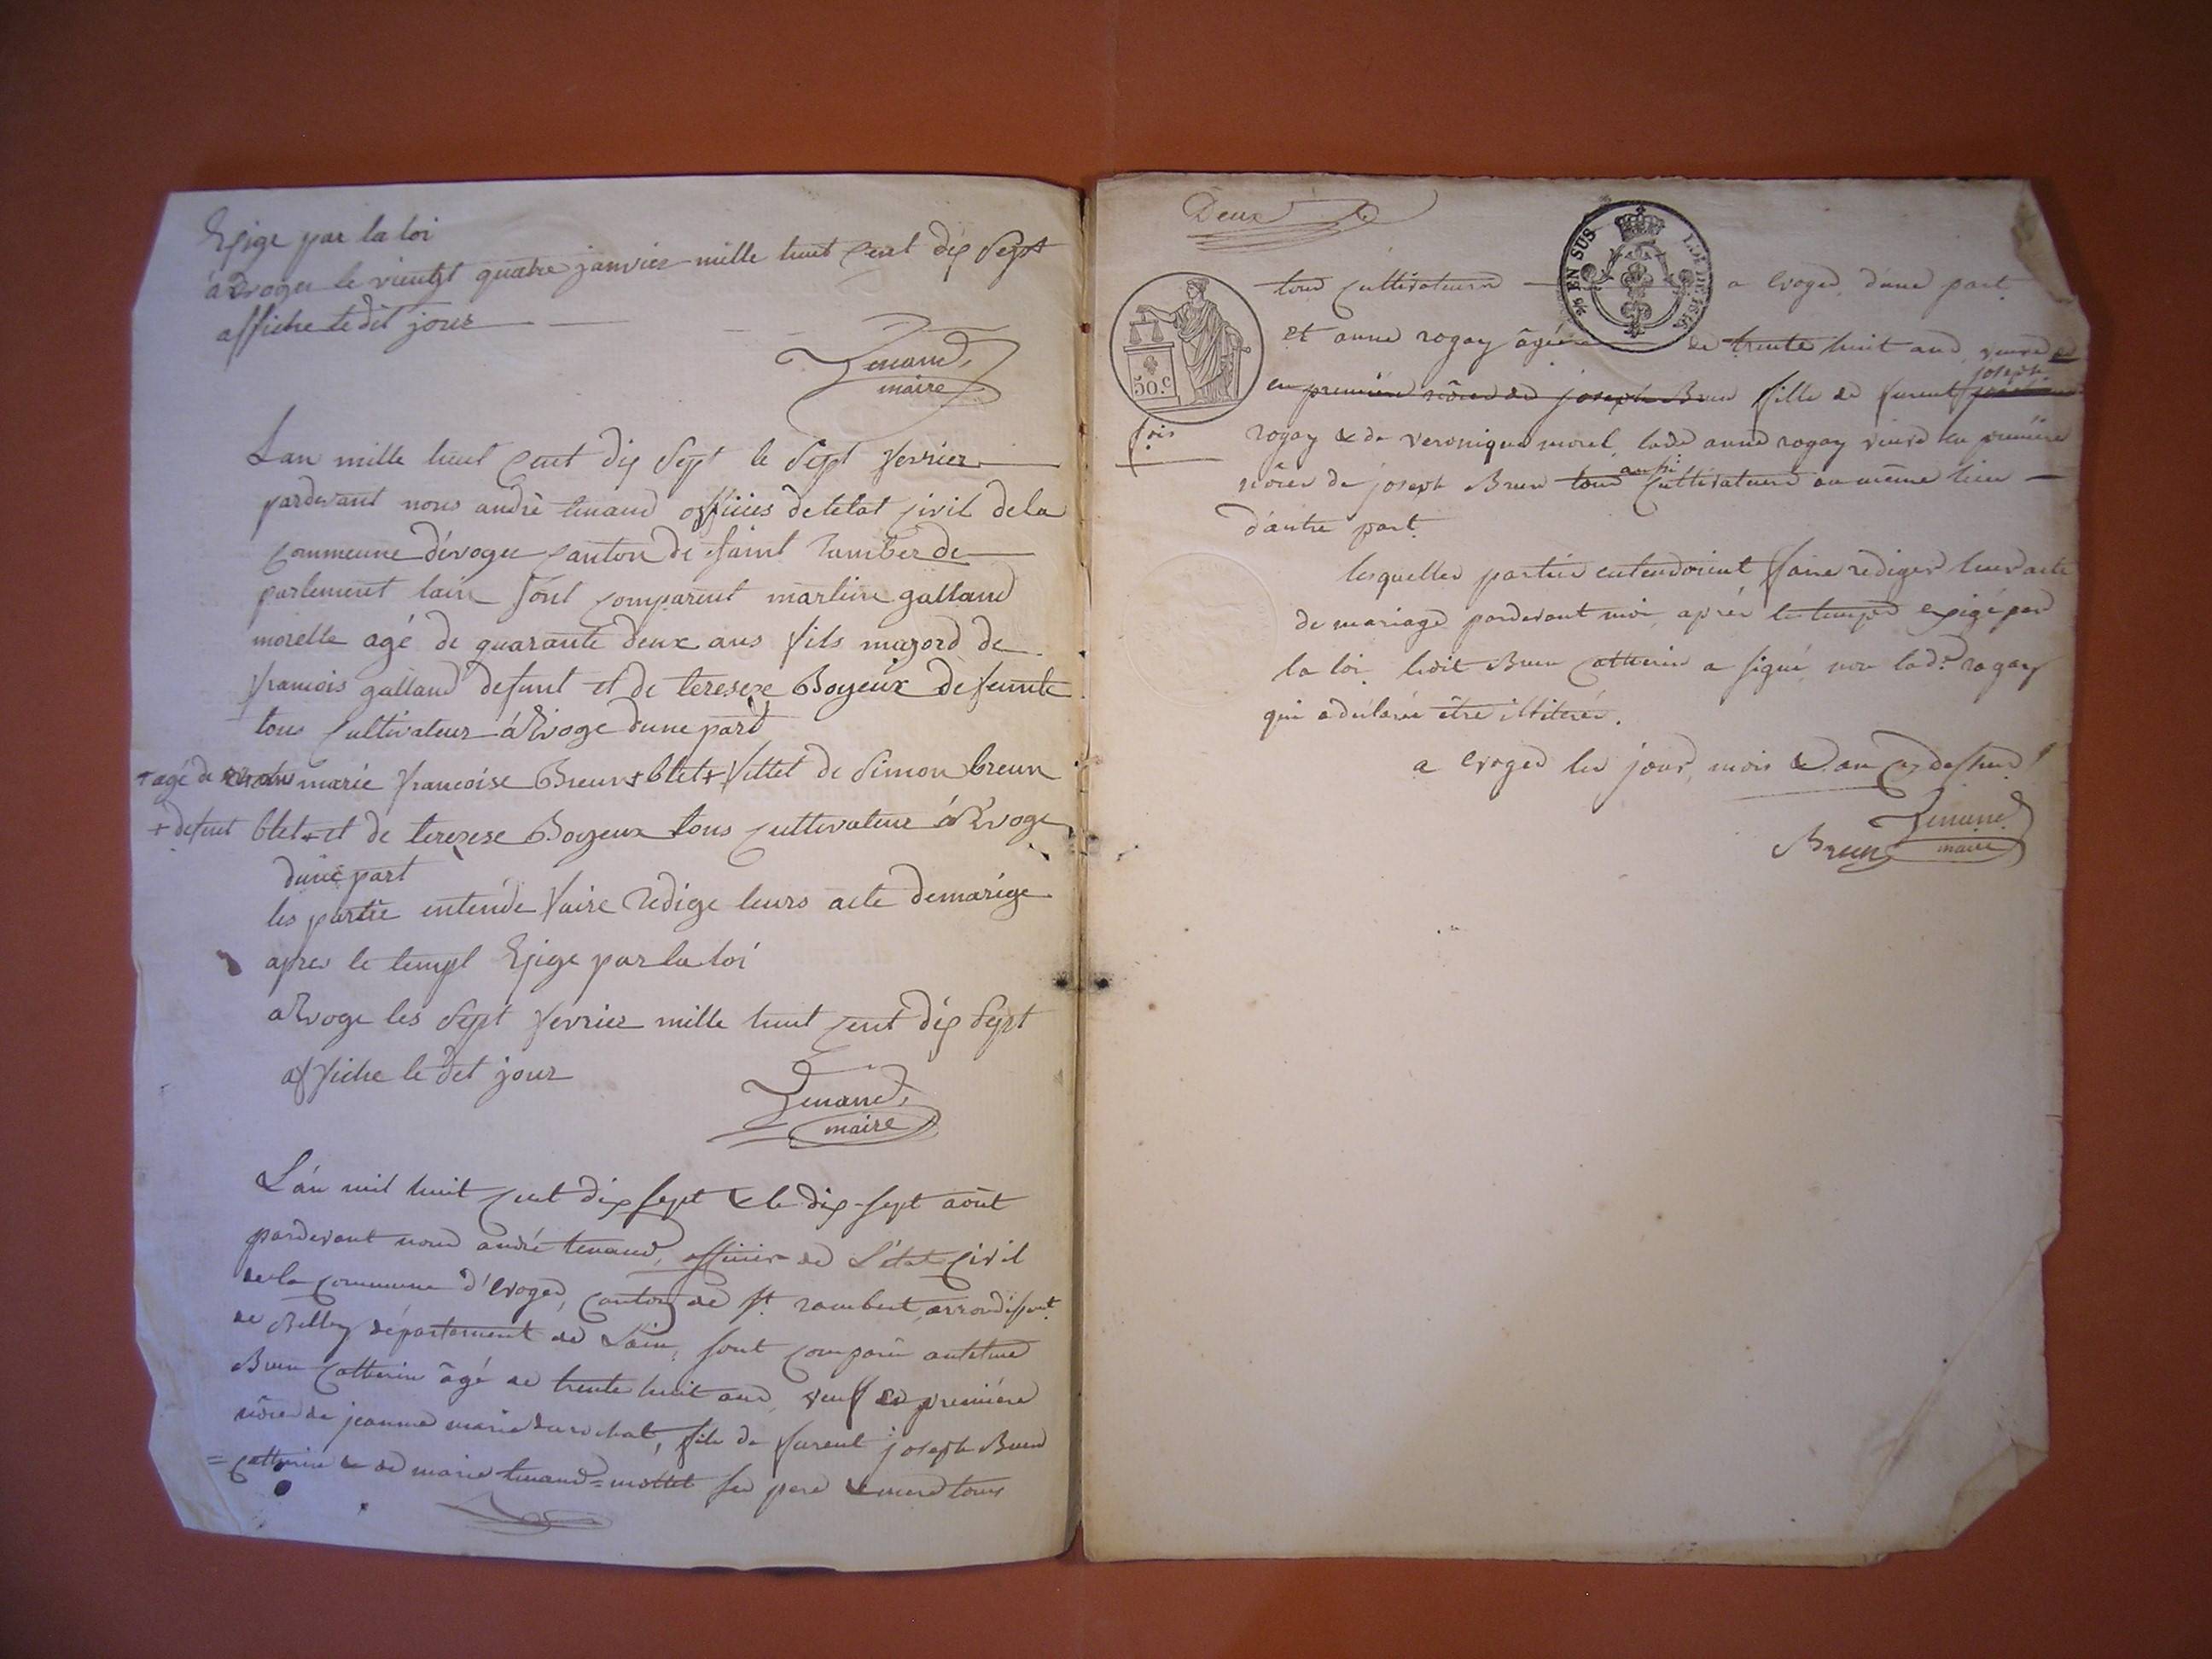 Exige par la loi
á Evoges le vientgt quatre janvier mille huit cent dix Sept
affiche le dit jour
Tenand,
maire
Lan mille huit cent dix Sept le Sept fevrier
pardevant nous andré tenand officies de letat civil de la
commeune dévoges canton de saint Ramber de
parlement lain sont comparent martin galland
morelle agé de quarante deux ans fils majord de
francois galland defunt et de teresexe Boyeux defeunte
tous Cultivateur á Evoge dune part
+ agé de marie francoise Breun + blet + fillet de Simon breun
+ defunt blet + et de terexese Boyeux tous cultivateur á Evoge
dune part
les partie entende faire Redige leurs acte demarige
apres le tempt Exige par la loi
a Evoge les Sept fevrier mille huit cent dix Sept
affiche le det jour
Tenand,
maire
L'an mil huit cent dix sept & le dix-sept août
pardevant nous andré tenand, officier de L'état civil
de la commune d'Evoges, canton de St. rambert, arrondissent.
de Belley département de L'ain, sont comparu antelme
Brun Catherin âgé de trente huit ans, veuf en première
nôces de jeanne marie durochat, fils de furent joseph Brun
= catherin & de marie tenand = mottet ses pere & mere tous
Deux
2/10 EN SUS
L. DE 1816
50.c
tous Cultivateurs a Evoges, d'une part
et anne rogay âgée de trente huit ans, veuve
en première nôces de joseph Brun fille de furent joseph
fois rogay & de veronique morel, lade anne rogay veuve en première
nôces de joseph Brun tous aussi Cultivateurs au même lieu
d'autre part.
lesquelles parties entendoient faire rediger leur acte
de mariage pardevant moi, après le temps exigé par
la loi. ledit Brun Catherin a signé, non lade. rogay
qui a déclarée être illiterée.
a Evoges les jour, mois & an cy dessus
Tenand
Brun maire